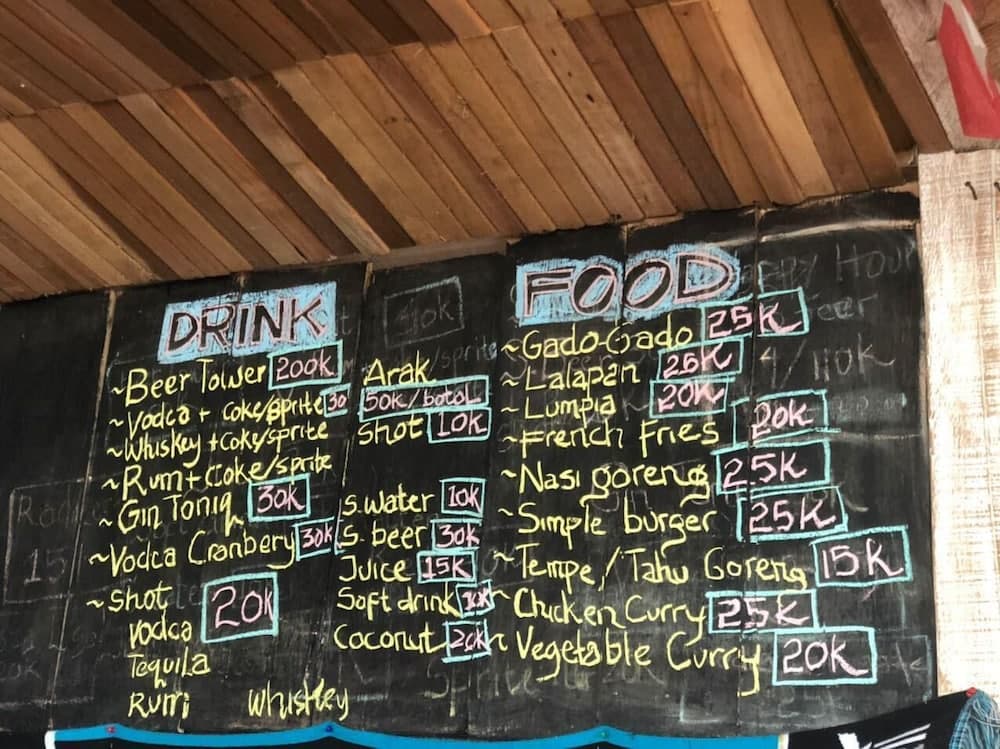 DRINK
~Beer Tower 200K
~Vodca + coke/sprite 30
~Whiskey + coke/sprite
~Rum + Coke/sprite
~Gin Toniq 30K
~Vodca Cranbery 30K
~Shot 20K
Vodca
Tequila
Rum Whiskey
Arak
50K/botol
Shot 10K
S.water 10K
S. beer 30K
Juice 15K
Soft drink
Coconut 20K
FOOD
~Gado-Gado 25K
~Lalapan 25K
~Lumpia 20K
~French Fries 20K
~Nasi goreng 25K
~Simple burger 25K
~Tempe/Tahu Goreng 15K
~Chicken Curry 25K
~Vegetable Curry 20K